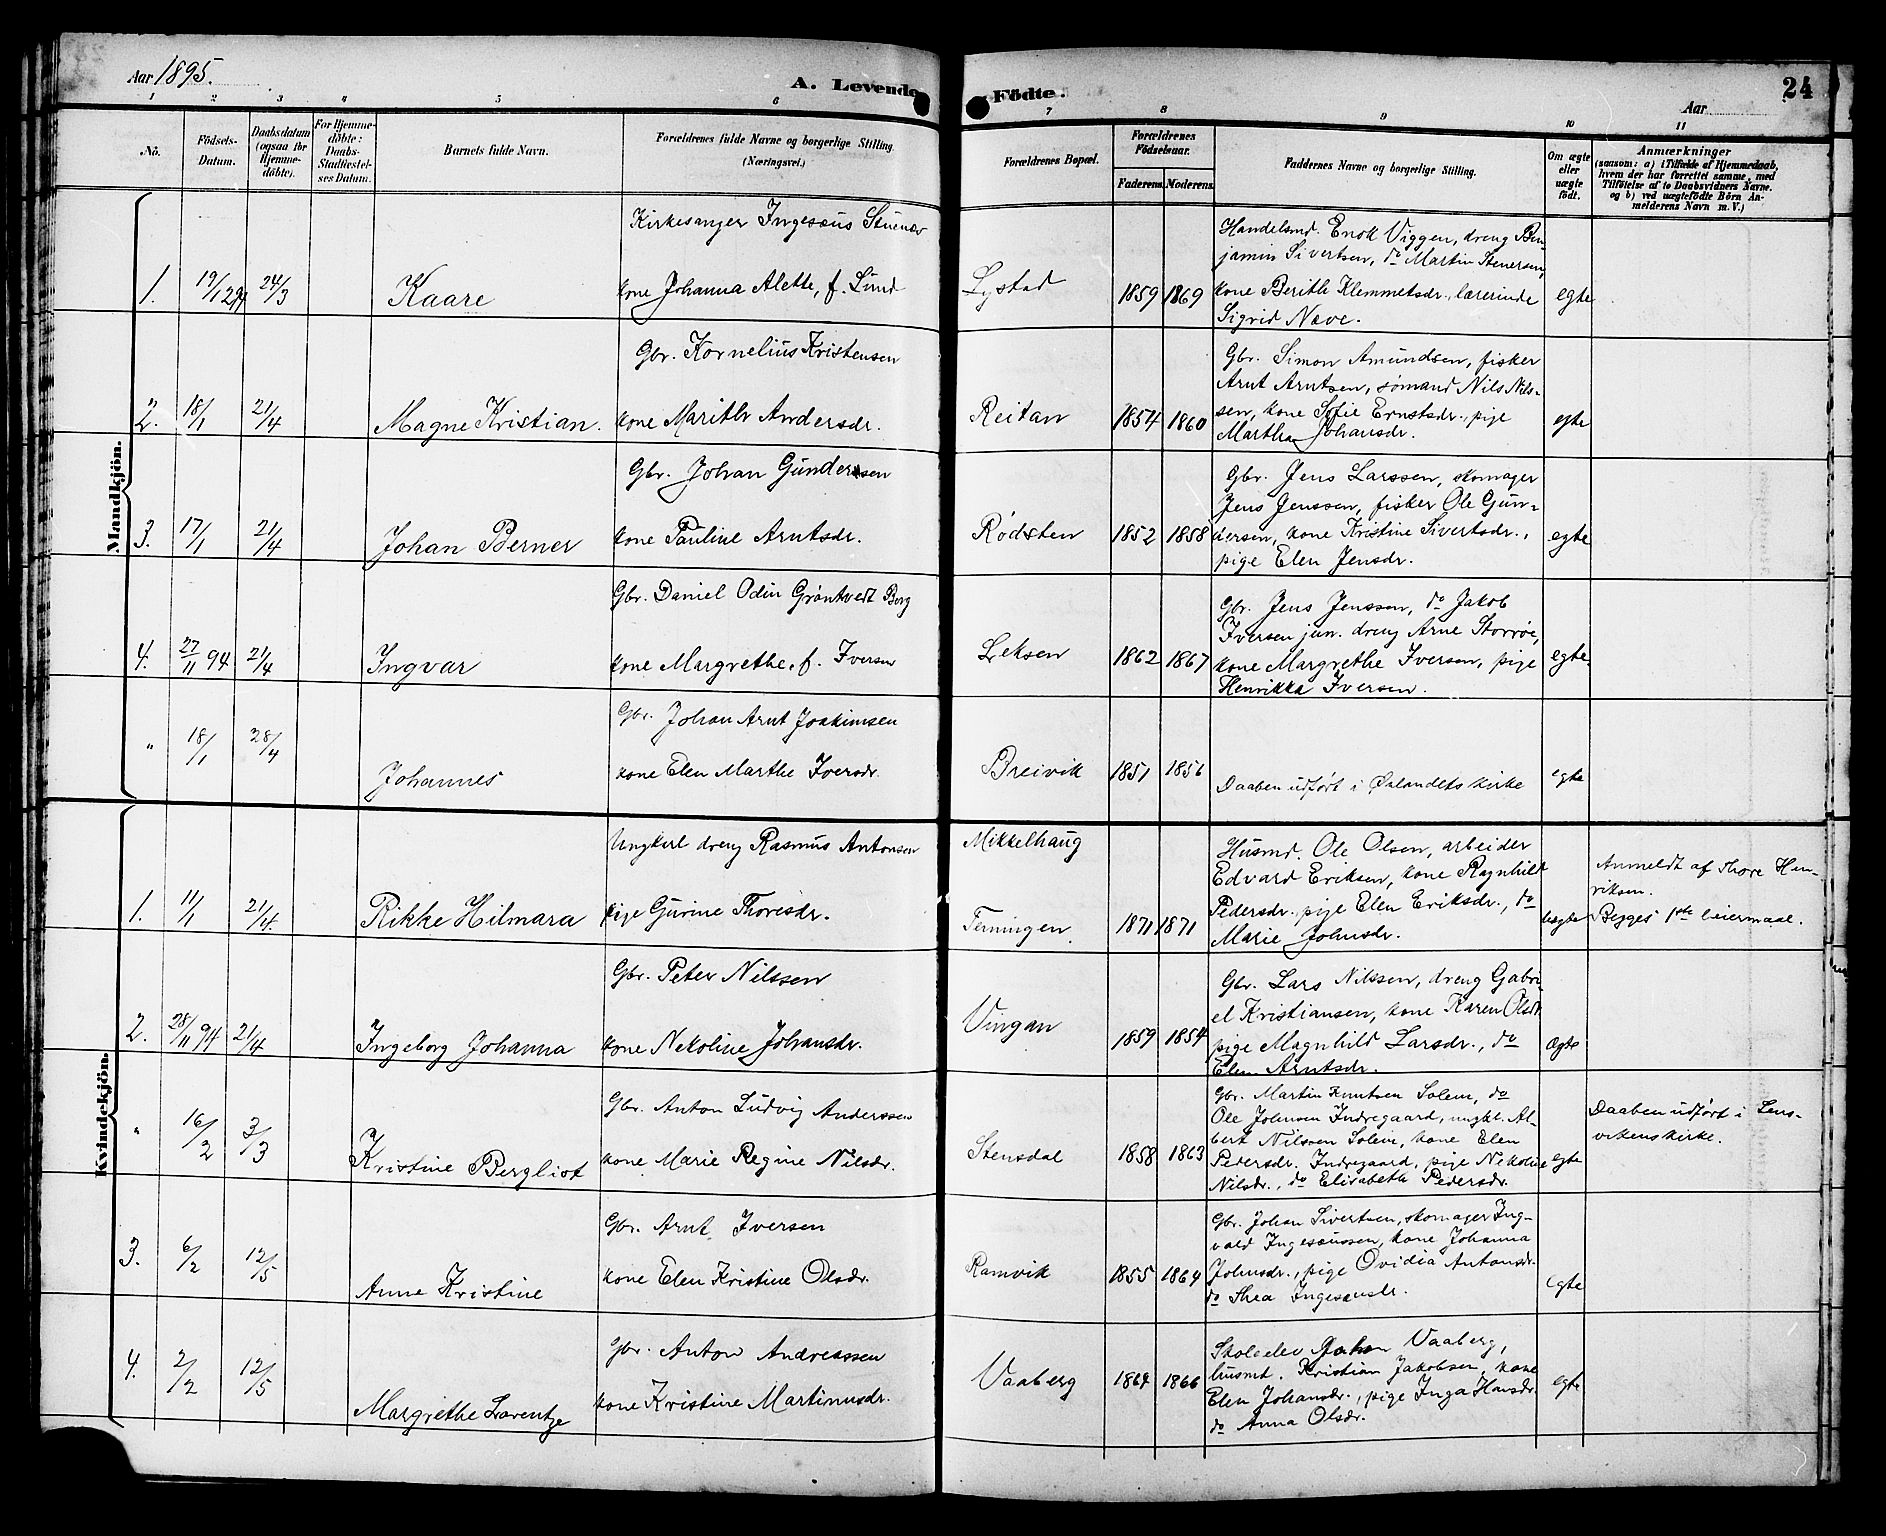 Aar 1895.
A. Levende Födte.
24
Aar
1 2 3 4 5 6 7 8 9 10 11
No.
Födsels-Datum.
Daabsdatum (ogsaa for Hjemme-döbte).
For Hjemme-döbte: Daabs-Stadfæstel-ses Datum.
Barnets fulde Navn.
Forældrenes fulde Navne og borgerlige Stilling. (Næringsvei.)
Forældrenes Bopæl.
Forældrenes Födselsaar.
Faderens. Moderens.
Faddernes Navne og borgerlige Stilling.
Om ægte eller uægte födt.
Anmærkninger
(saasom: a) i Tilfælde af Hjemmedaab,
hvem der har forrettet samme, med
Tilföielse af to Daabsvidners Navne.
og b) ved uægtefödte Börn An-
melderens Navn m. V.)
Mandkjön.
Kirkesanger Ingesæus Stuenæs
1. 24/3 Kaare
kone Johanna Alette, f. Lund
Lystad 1859 1869
Handelsmd. Enok Viggen, dreng Ben-
jamin Sivertsen, do Martin Stenersen,
kone Berith Klemmetsdr., lærerinde
Sigrid Næve.
egte
Gbr. Kornelius Kristensen
2. 18/1 21/4 Magne Kristian.
kone Marith Andersdr.
Reitan 1854 1860
Gbr. Simon Amundsen, fisker
Arnt Arntsen, sømand Nils Nils-
sen, kone Sofie Ernstsdr., pige
Martha Johansdr.
egte
Gbr. Johan Gundersen
3. 17/1 21/4 Johan Berner
kone Pauline Arntsdr.
Rødsten 1852 1858
Gbr. Jens Larssen, skomager
Jens Jenssen, fisker Ole Gun-
dersen, kone Kristine Sivertsdr.,
pige Elen Jensdr.
egte
Gbr. Daniel Odin Grøntvedt Borg
4. 27/11 94 21/4 Ingvar
kone Margrethe, f. Iversen
Leksen 1862 1867
Gbr. Jens Jenssen, do Jakob
Iversen jun. dreng Arne Storrøe,
kone Margrethe Iversen, pige
Henrikka Iversen.
egte
Gbr. Johan Arnt Joakimsen
" 18/1 28/4 Johannes
kone Elen Marthe Iversdr.
Breivik 1851 1856
Daaben udført i Ørlandets kirke
egte
Kvindekjön.
Ungkarl dreng Rasmus Antonsen
1. 11/1 21/4. Rikke Hilmara
pige Gurine Thoresdr.
Mikkelhaug
Terningen 1871 1871
Husmd. Ole Olsen, arbeider
Edvard Eriksen, kone Ragnhild
Pedersdr., pige Elen Eriksdr., do
Marie Johnsdr.
uegte
Anmeldt af Thore Hen-
riksen.
Begges 1ste leiermaal.
Gbr. Peter Nilssen
2. 28/11 94 21/4 Ingeborg Johanna
kone Nekoline Johansdr.
Vingan 1859 1854
Gbr. Lars Nilssen, dreng Gabri-
el Kristiansen, kone Karen Olsdr.
pige Magnhild Larsdr., do
Elen Arntsdr.
Ægte
Gbr. Anton Ludvig Anderssen
" 16/2 3/3 Kristine Bergliot
kone Marie Regine Nilsdr.
Stensdal 1858 1863
Gbr. Martin Knutsen Solem, do
Ole Johnsen Indregaard, ungkl. Al-
bert Nilssen Solem, kone Elen
Pedersdr. Indregaard, pige Nekoline
Nilsdr., do Elisabeth Pedersdr.
egte
Daaben udført i Lens-
vikens kirke.
Gbr. Arnt Iversen
3. 6/2 12/5 Anne Kristine
kone Elen Kristine Olsdr.
Ramvik 1855 1864
Gbr. Johan Sivertsen, skomager Ing-
vald Ingesæussen, kone Johanna
Johnsdr., pige Ovidia Antonsdr.
do Thea Ingesæusdr.
egte
Gbr. Anton Andreassen
4. 2/2 12/5 Margrethe Lorentze
kone Kristine Martinusdr.
Vaaberg 1864 1866
Skoleelev Johan Vaaberg,
husmt. Kristian Jakobsen, kone
Elen Johansdr., pige Inga Hansdr.
do Anna Olsdr.
egte